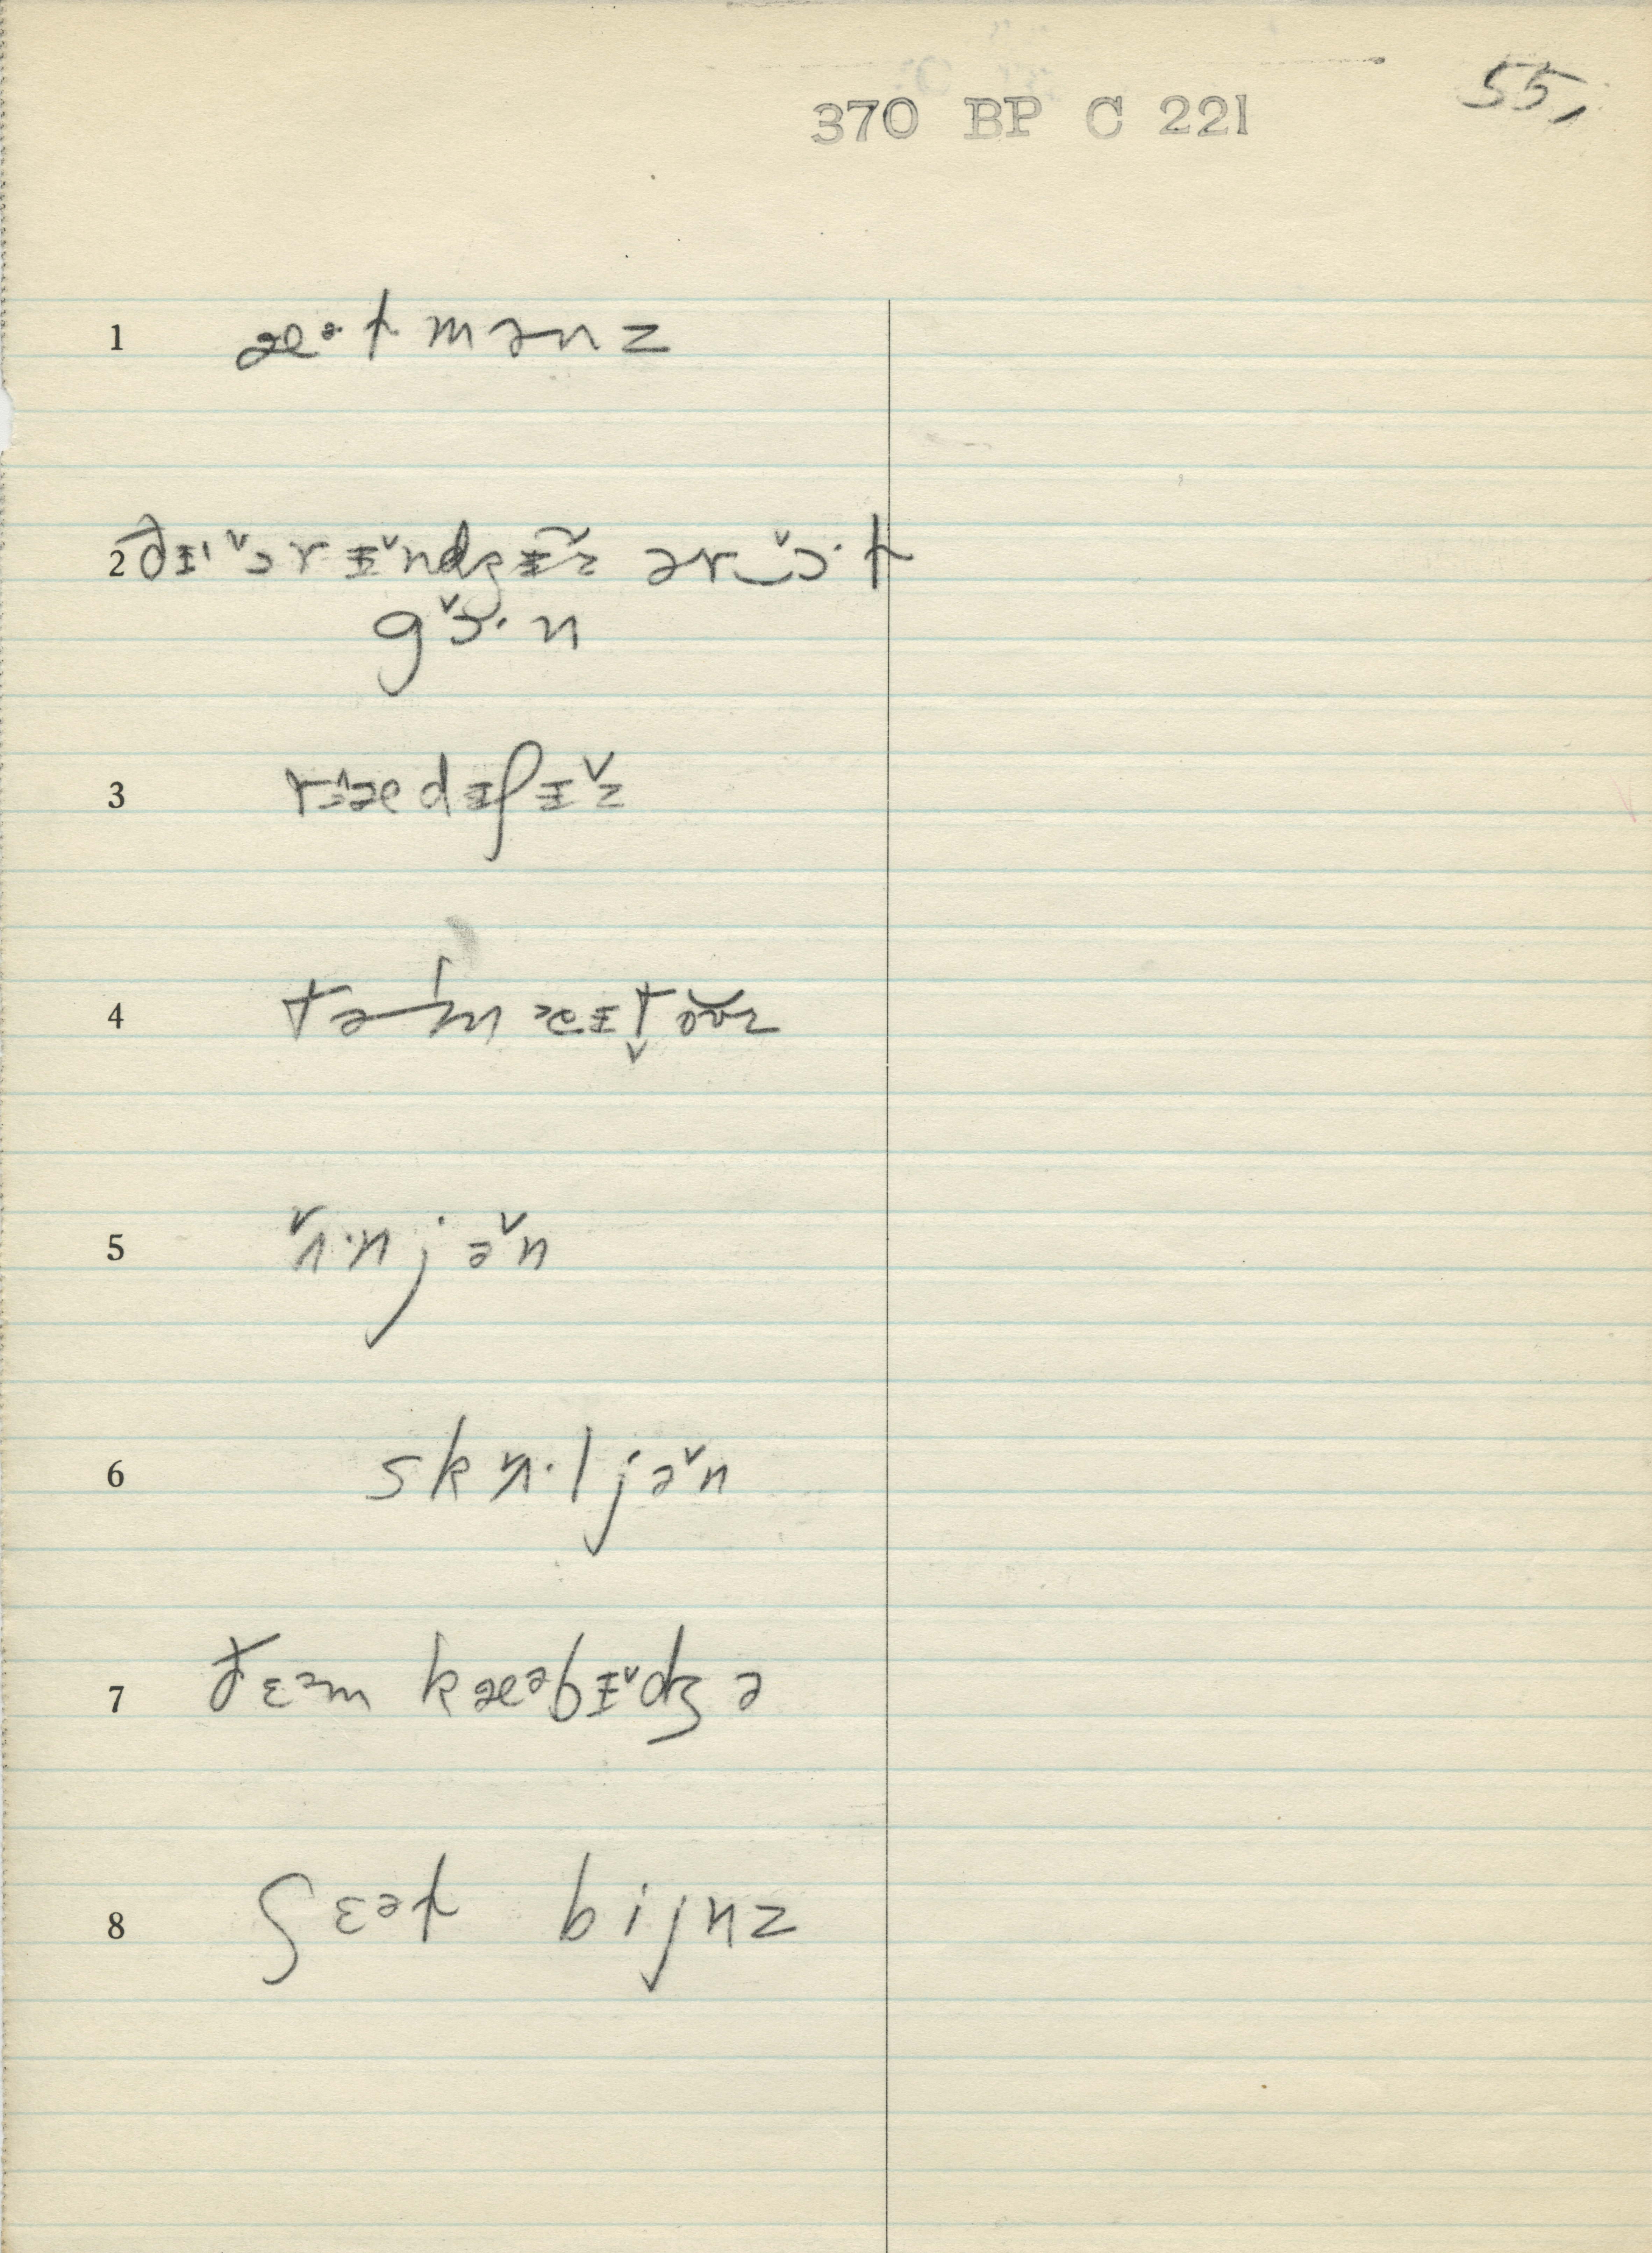 370 BP C 221
55,
1 æᵊ·t mənz
2 ðɨ ˅ɔrɨ˅ndʒɨ˅z ər‿ɔ˅·t
gɔ˅·n
3 rædɨʃɨ˅z
4 təmeɨt̬ōz
5 ʌ˅·njə˅n
6 skʌ˅·ljə˅n
7 ðɛᵊm kæᵊbɨ˅dʒə
8 ʃɛᵊt bijnz